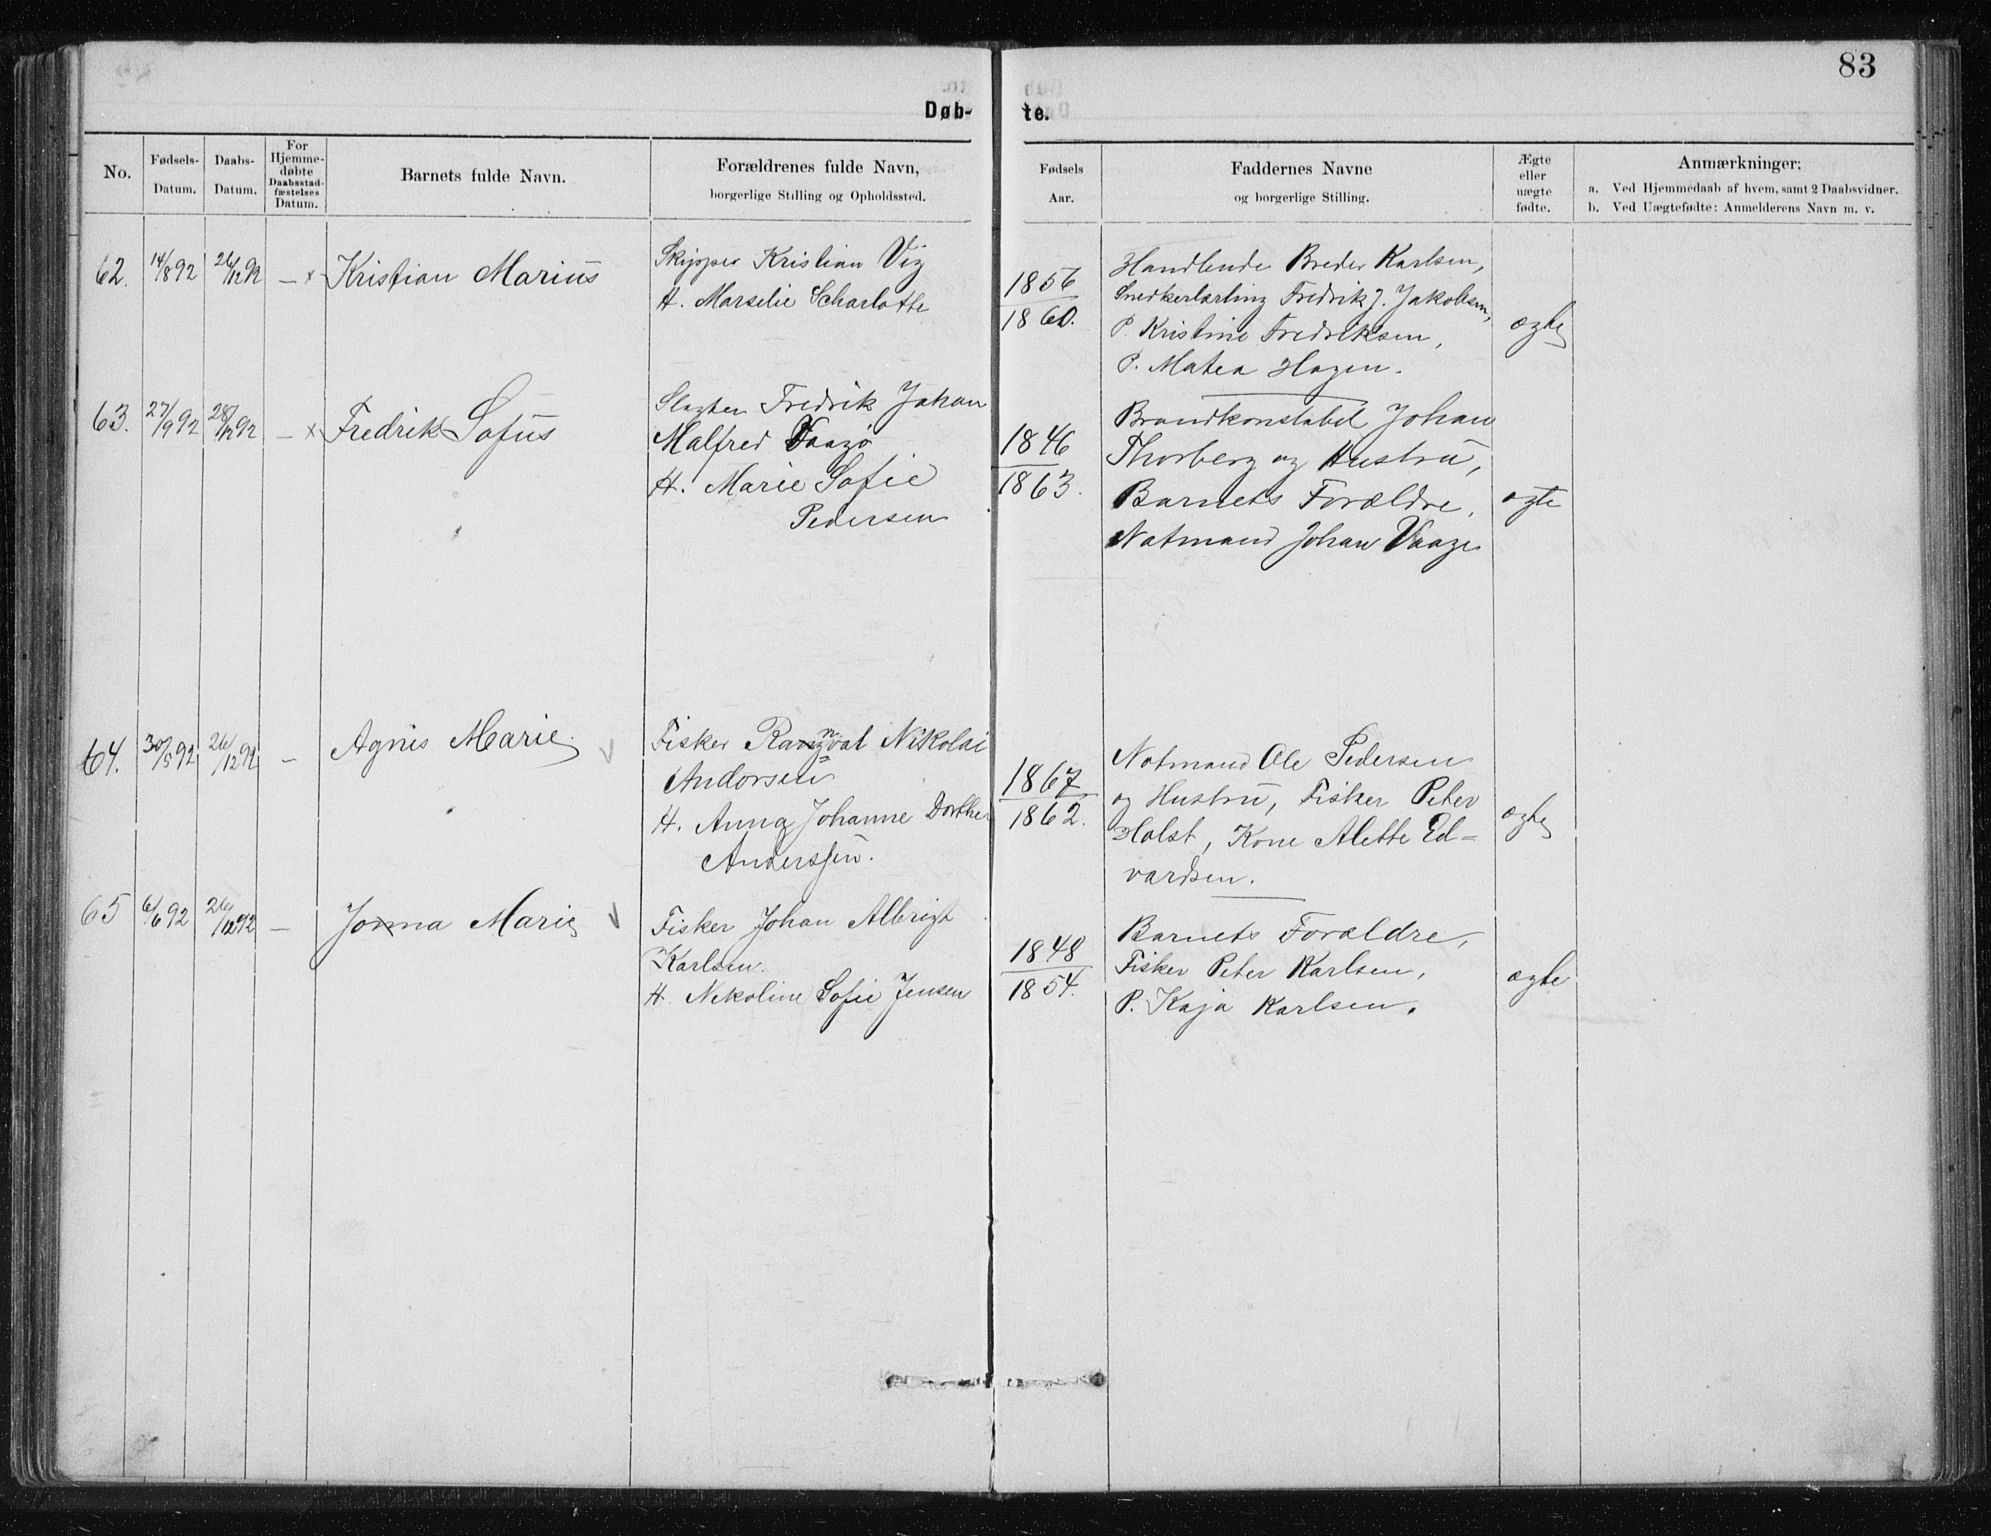 83
Døb-
te.
No.
Fødsels-
Datum.
Daabs-
Datum.
For
Hjemme-
døbte
Daabsstad-
fæstelses
Datum.
Barnets fulde Navn.
Forældrenes fulde Navn,
borgerlige Stilling og Opholdssted.
Fødsels
Aar.
Faddernes Navne
og borgerlige Stilling.
Ægte
eller
uægte
fødte.
Anmærkninger:
a. Ved Hjemmedaab af hvem, samt 2 Daabsvidner.
b. Ved Uægtefødte: Anmelderens Navn m. v.
62. 14/8 92 26/12 92 — x Kristian Marius
Skipper Kristian Vig
H. Marselie Scharlotte
1856
1860.
Handlende Breder Karlsen,
Snedkerlærling Fredrik J. Jakobsen,
P. Kristine Fredriksen,
P. Matea Hagen.
ægte
63. 27/9 92 28/12 92 — x Fredrik Sofus
Slagter Fredrik Johan
Malfred Vaagø
H. Marie Sofie
Pedersen
1846
1863.
Brandkonstabel Johan
Thorberg og Hustru,
Barnets Forældre,
Notmand Johan Vaage
ægte
64. 30/5 92 26/12 92 — Agnis Marie
Fisker Rangval Nikolai
Andersen
H. Anna Johanne Dorthea
Anderssen.
1867
1862.
Notmand Ole Pedersen
og Hustru, Fisker Peter
Holst, Kone Alette Ed=
vardsen.
ægte
65 6/6 92 26/12 92 — Jonna Marie
Fisker Johan Albrigt
Karlsen.
H. Nikoline Sofie Jensen
1848
1854.
Barnets Forældre,
Fisker Peter Karlsen,
P. Kaja Karlsen.
ægte